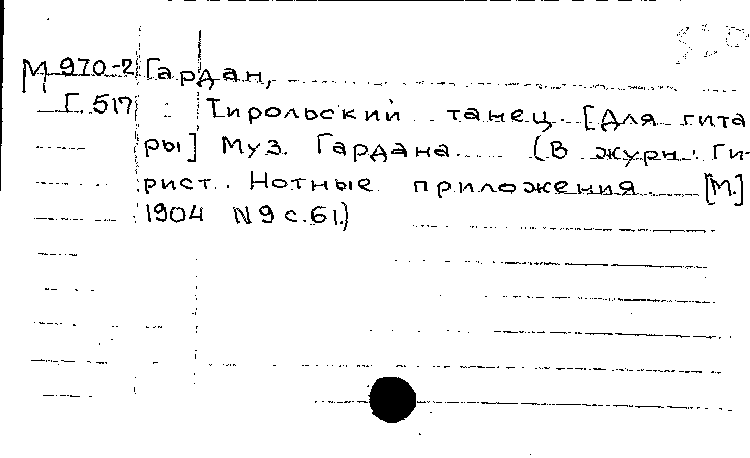 М 970-2 Гардан,
Г. 517 Тирольский танец. [Для гита
ры] Муз. Гардана (В журн. Ги-
рист. Нотные приложения. [М.]
1904 N 9 с. 61.)